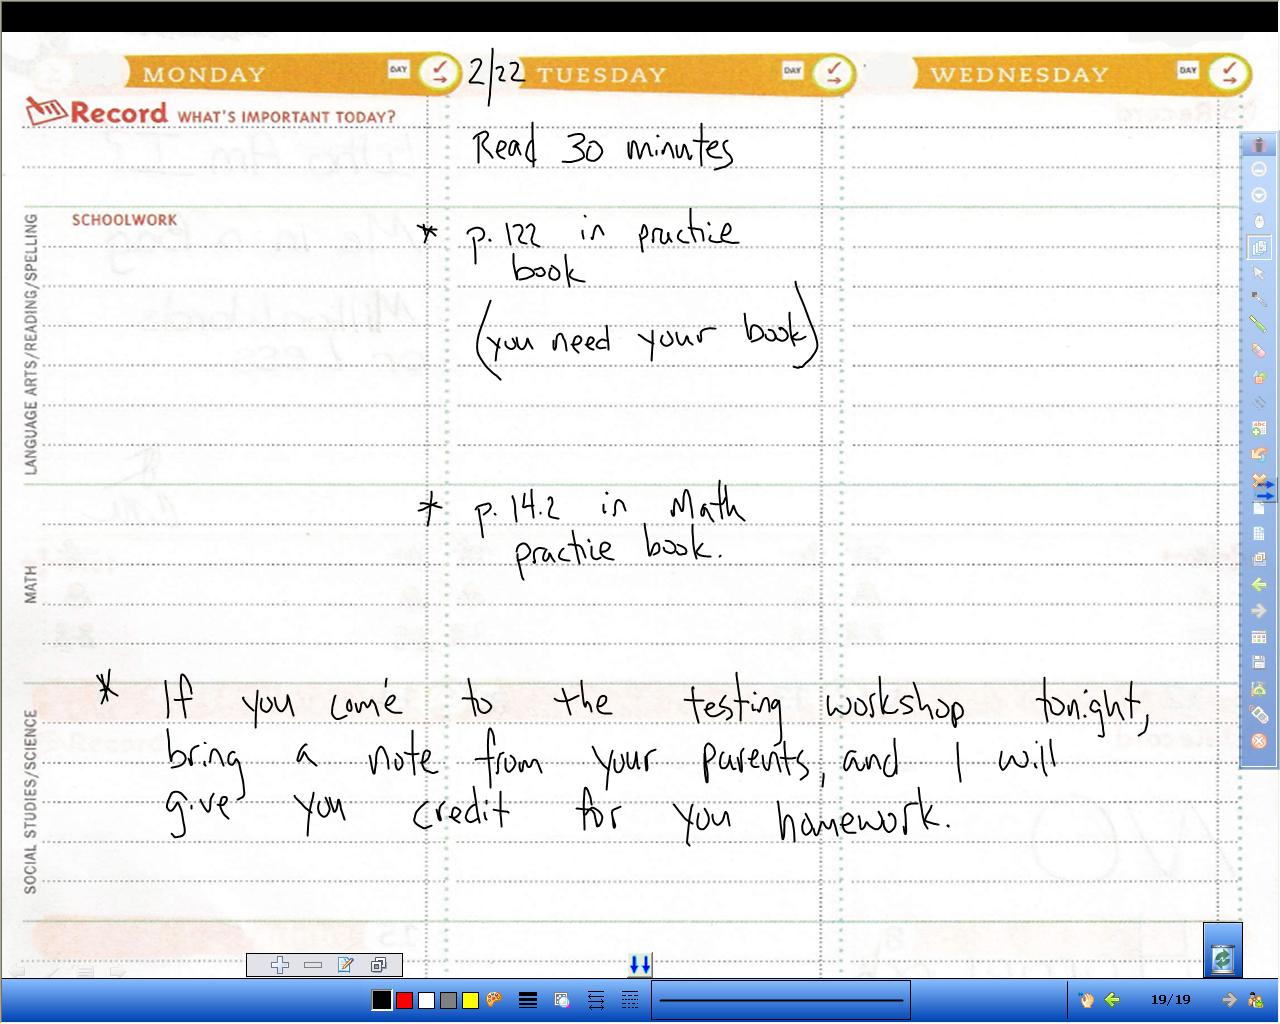 MONDAY DAY 2/22 TUESDAY DAY WEDNESDAY DAY
Record WHAT'S IMPORTANT TODAY?
Read 30 minutes
SCHOOLWORK
LANGUAGE ARTS/READING/SPELLING
* p. 122 in practice
book
(you need your book)
MATH
* p. 14.2 in Math
practice book.
SOCIAL STUDIES/SCIENCE
* If you come to the testing workshop tonight,
bring a note from your parents, and I will
give you credit for you homework.
19/19